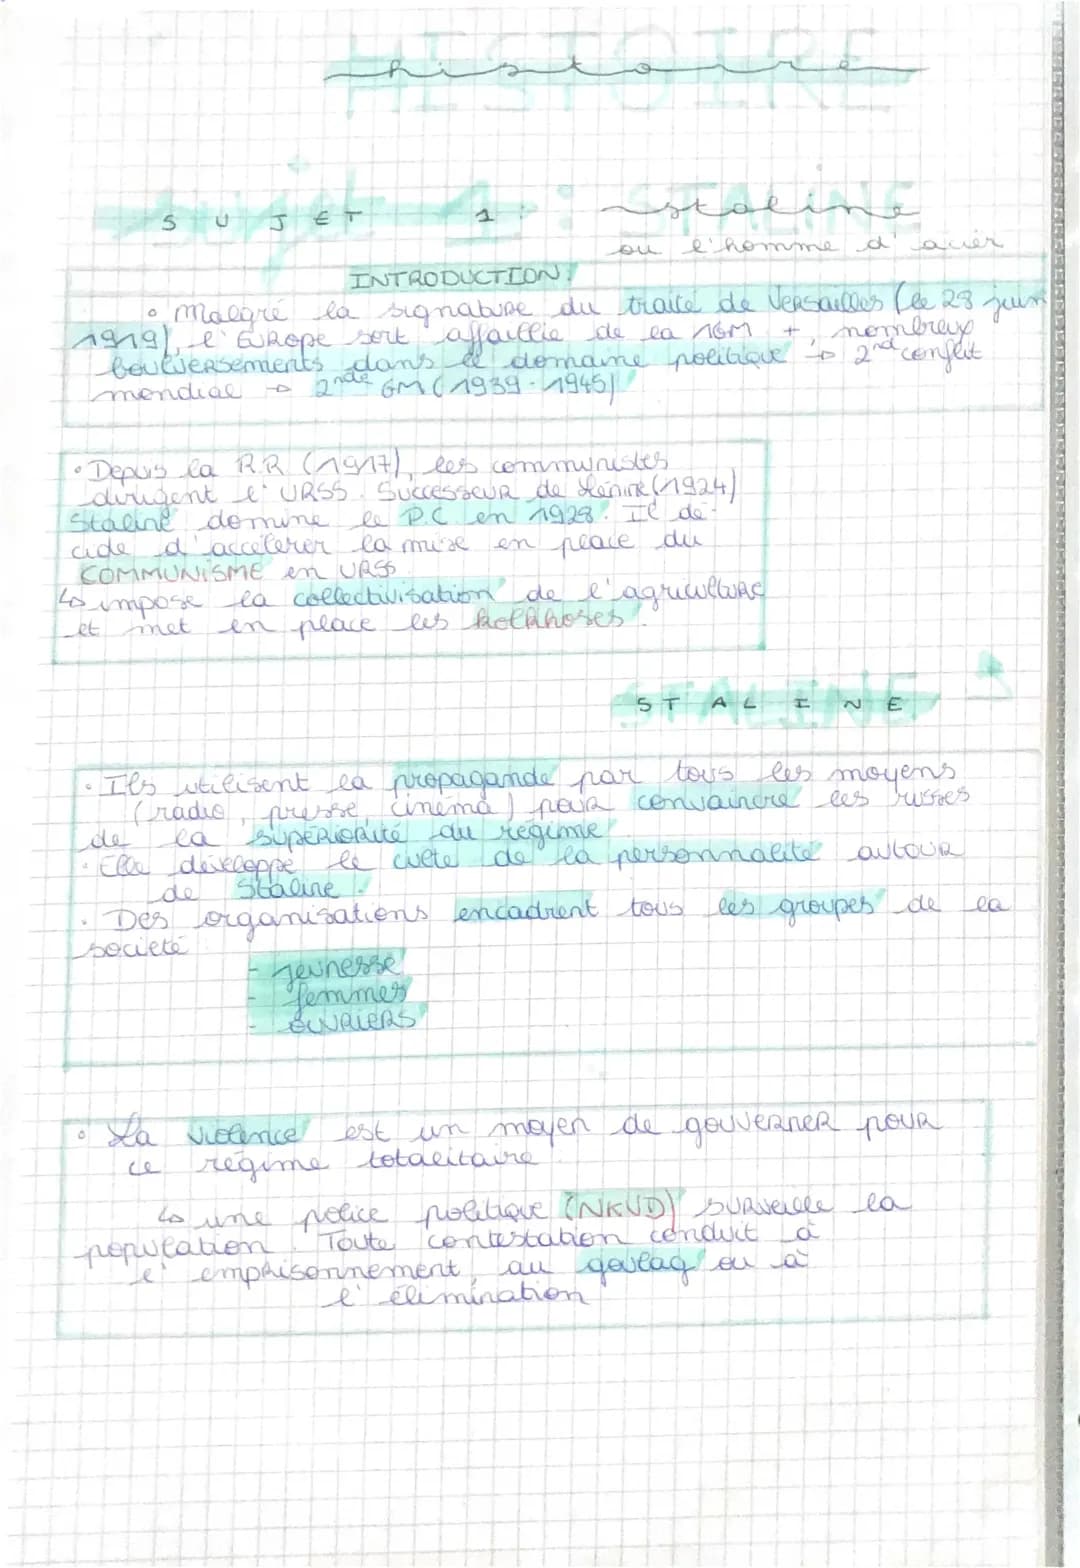 histoire
SUJET 1 : staline
ou l'homme d'acier
INTRODUCTION:
• Malgré la signature du traité de Versailles (le 28 juin
1919), l'Europe sort affaiblie de la 1GM + nombreux
bouleversements dans le domaine politique → 2nd conflit
mondial → 2nde GM (1939-1945)
• Depuis la R.R (1917), les communistes
dirigent l'URSS. Successeur de Lénine (1924)
Staline domine le P.C en 1928. Il dé-
cide d'accélérer la mise en place du
COMMUNISME en URSS.
↳ impose la collectivisation de l'agriculture
et met en place les kolkhoses.
STALINE
• Ils utilisent la propagande par tous les moyens
(radio, presse, cinéma) pour convaincre les russes
de la supériorité du régime
• Elle développe le culte de la personnalité autour
de Staline.
• Des organisations encadrent tous les groupes de la
société
- jeunesse
- femmes
- ouvriers
• La violence est un moyen de gouverner pour
ce régime totalitaire.
↳ une police politique (NKVD) surveille la
population. Toute contestation conduit à
l'emphisonnement, au goulag ou à
l'élimination